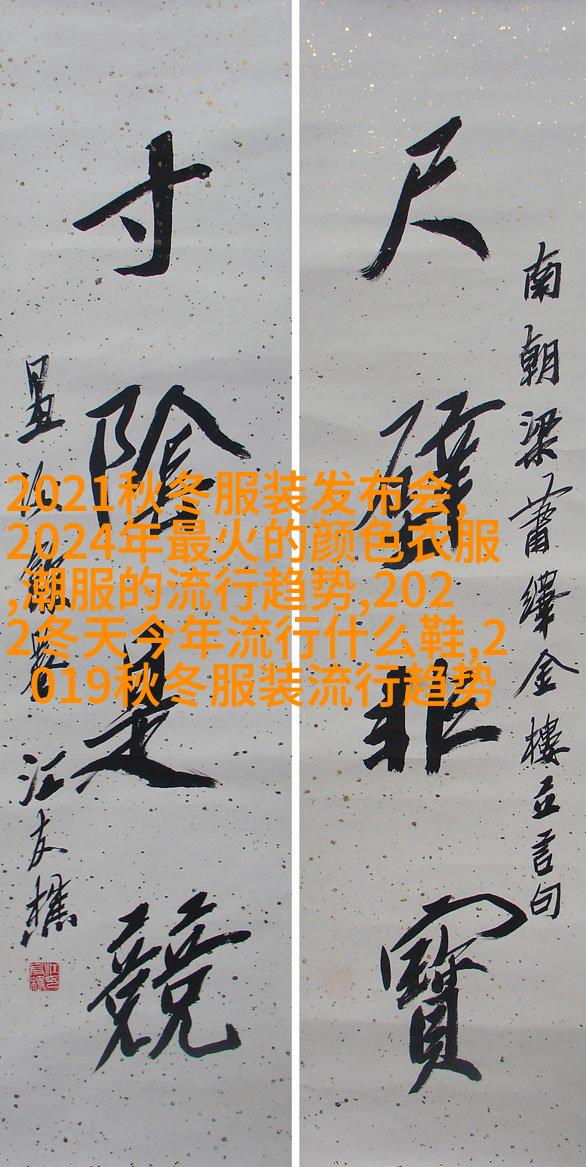 南朝梁蕭繹金樓立言句
尺璧非寶
寸陰是競
汪友樵
2021秋冬服装发布会,
2024年最火的颜色衣服
,潮服的流行趋势,202
2冬天今年流行什么鞋,2
019秋冬服装流行趋势